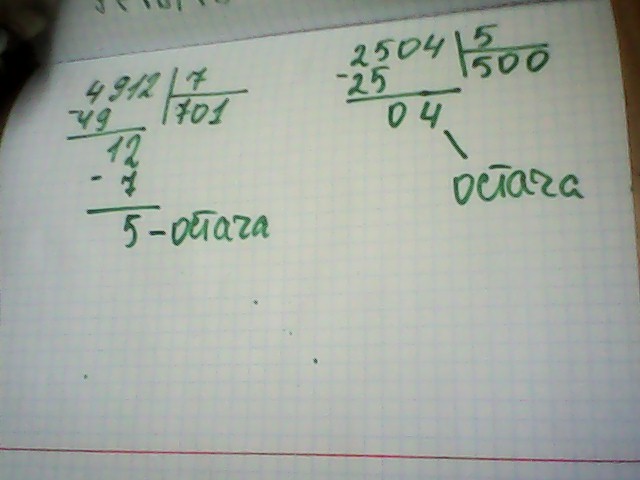 4912 7
-49 701
12
- 7
5 - остача
2504 5
-25 500
04
остача